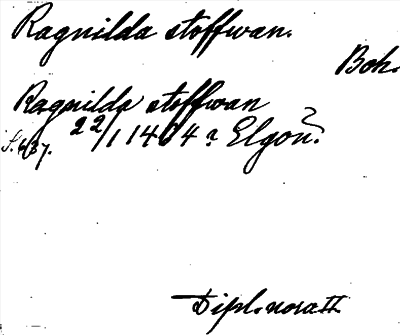 Ragnilda stoffwan.
Boh.
Ragnilda stoffwan
S. 637. 22/1 1404 a Elgon?
Dipl. nova II